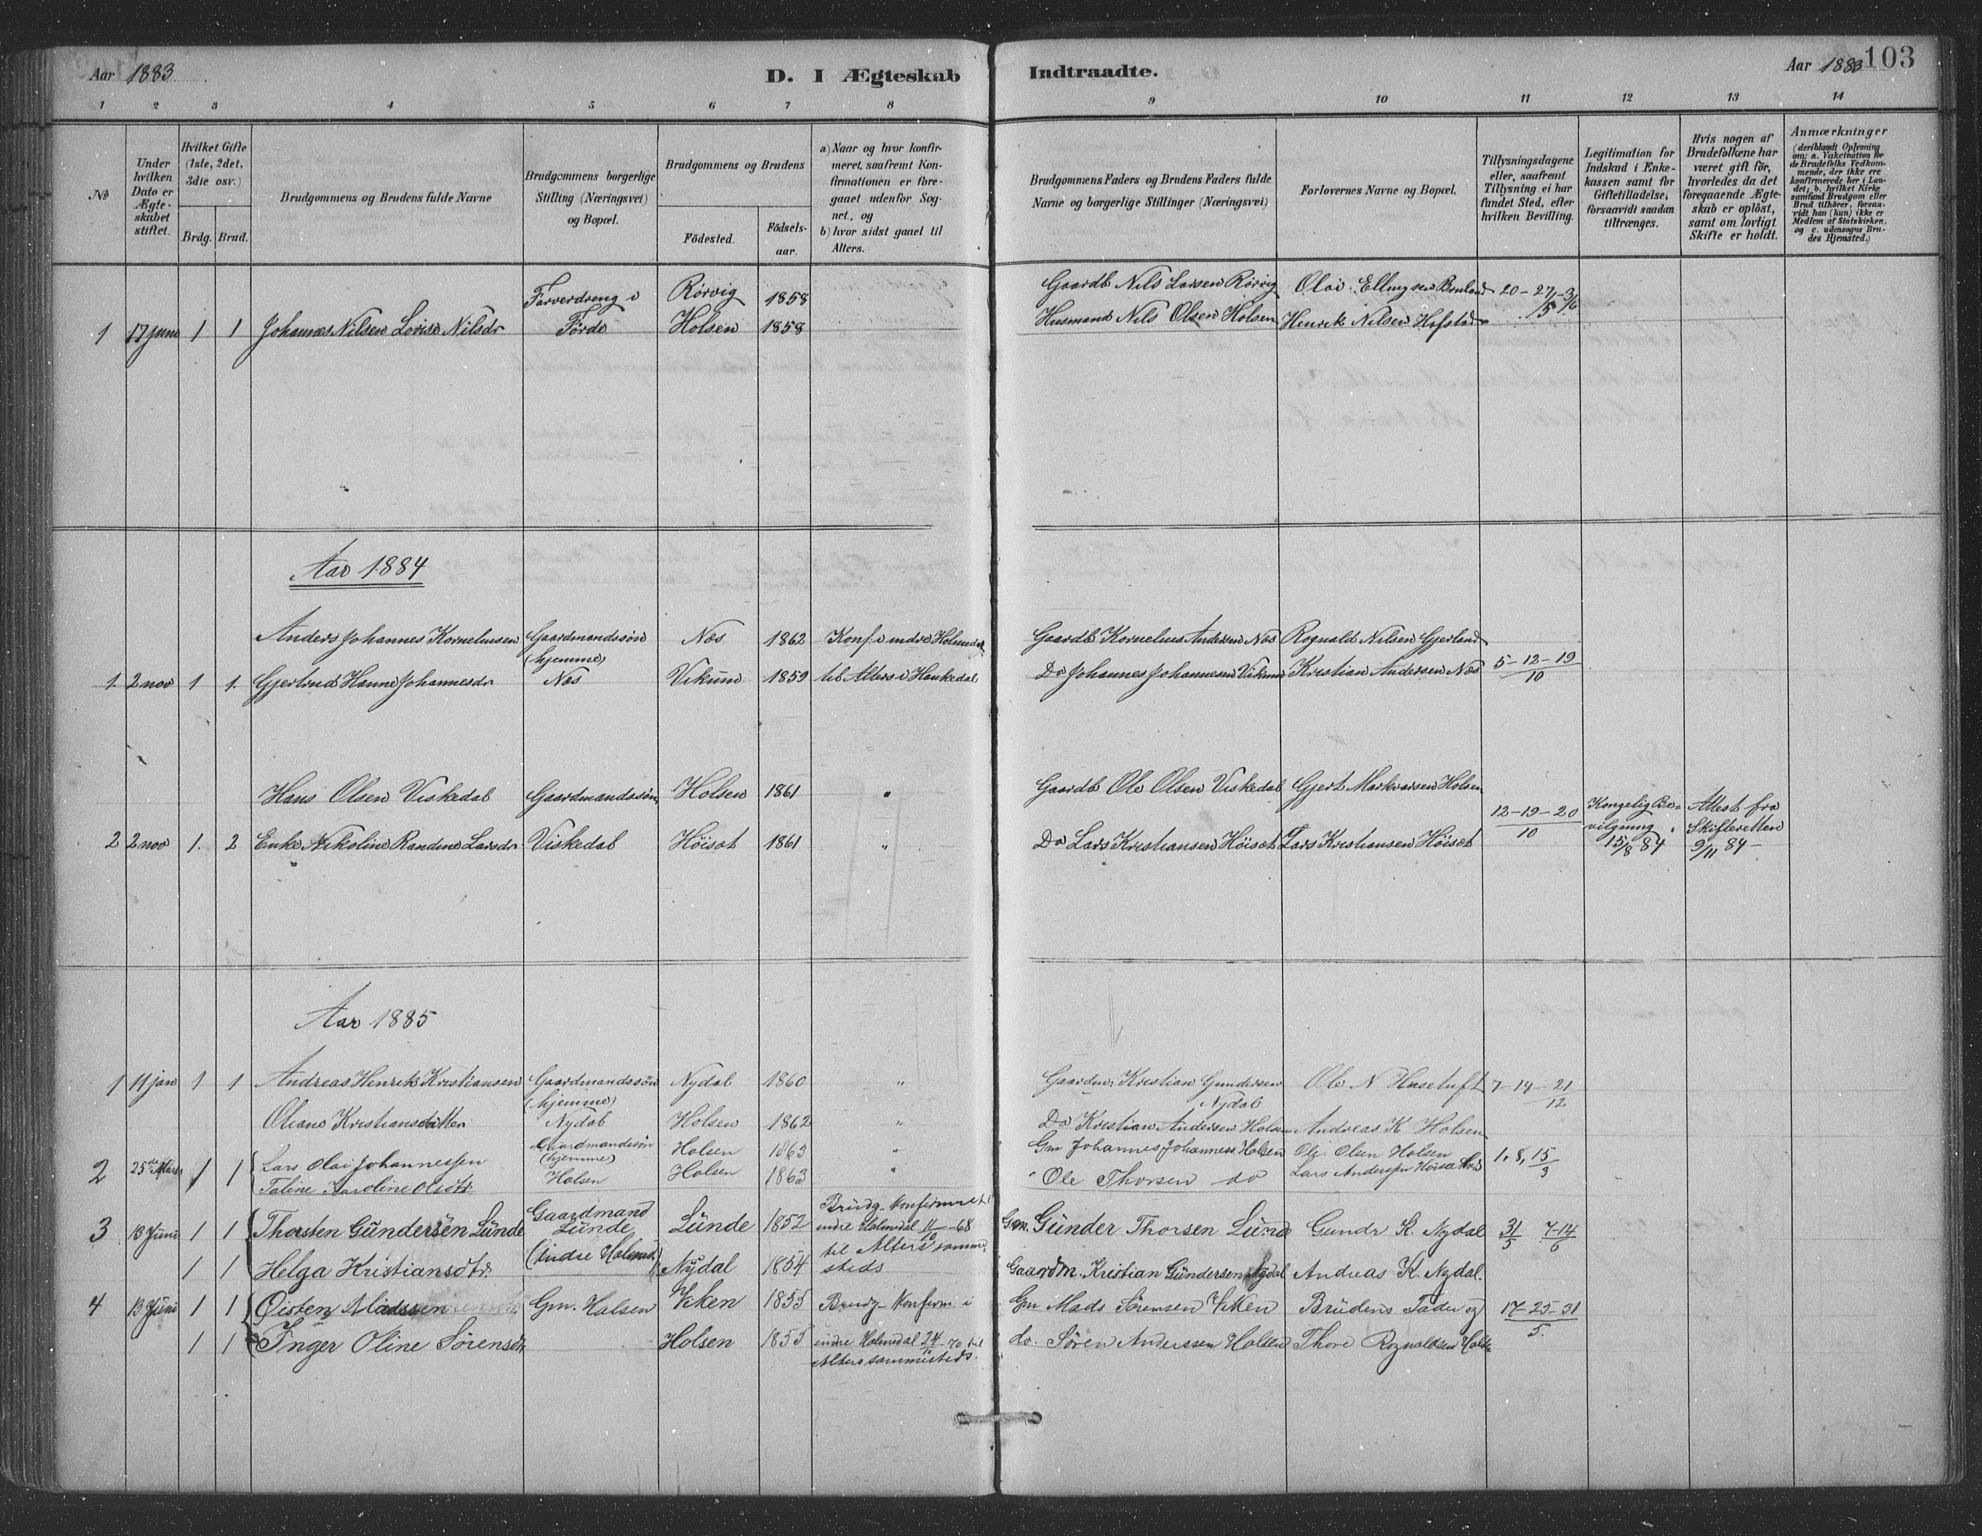 Aar 1883
D. I Ægteskab Indtraadte.
Aar 1883 103
1 2 3 4 5 6 7 8 9 10 11 12 13 14
№
Under hvilken Dato er Ægteskabet stiftet.
Hvilket Gifte (1ste, 2det, 3die osv.)
Brdg. Brud.
Brudgommens og Brudens fulde Navne
Brudgommens borgerlige Stilling (Næringsvei) og Bopæl.
Brudgommens og Brudens
Fødested. Fødselsaar.
a) Naar og hvor konfirmeret, saafremt Konfirmationen er foregaaet udenfor Sognet, og
b) hvor sidst gaaet til Alters.
Brudgommens Faders og Brudens Faders fulde Navne og borgerlige Stillinger (Næringsvei)
Forlovernes Navne og Bopæl.
Tillysningsdagene eller, saafremt Tillysning ei har fundet Sted, efter hvilken Bevilling.
Legitimation for Indskud i Enkekassen samt for Giftetilladelse, forsaavidt saadan tiltrænges.
Hvis nogen af Brudefolkene har været gift før, hvorledes da det foregaaende Ægteskab er opløst, samt om lovligt Skifte er holdt.
Anmærkninger (deriblandt Oplysning om: a. Vakcination for de Brudefolks Vedkommende, der ikke ere konfirmerede her i Landet; b. hvilket Kirkesamfund Brudgom eller Brud tilhører, forsaavidt han (hun) ikke er Medlem af Statskirken, og c. udensogns Brudes Hjemsted.)
Farverdreng i Rørvig 1858 Gaardb Nils Larsen Rørvig Olai Ellingsen Bruland 20-27/5-3/6
1 17 juni 1 1 Johannes Nilsen Lovise Nilsdr Førde Holsen 1858 Husmand Nils Olsen Holsen Henrik Nilsen Hofstad
Aar 1884
Anders Johannes Korneliusen Gaardmandssøn Næs 1862 Konf. i indre Holmedal Gaardb Kornelius Andersen Næs Rognald Nilsen Gjerland
(hjemme)
1. 2 nov 1 1. Gjertrud Hanne Johannesdr Næs Vikum 1859 til Alters i Haukedal Do Johannes Johannesen Vikum Kristian Andersen Næs 5-12-19/10
Hans Olsen Viskedal Gaardmandssøn Holsen 1861 " Gaardb Ole Olsen Viskedal Gjert Markvarsen Holsen
12-19-20/10 Kongelig Bevilgning 15/8 84 Attest fra Skifteretten 9/11 84-
2 2 nov 1. 2 Enke Nikoline Randine Larsdr Viskedal Høisæt 1861 " Do Lars Kristiansen Høisæt Lars Kristiansen Høisæt
Aar 1885
1 11 jan 1 1 Andreas Henrik Kristiansen Gaardmandssøn Nydal 1860 " Gaardm. Kristian Gundersen Nydal Ole N Hasetuft 7-14-21/12
(hjemme)
Oliane Kristiansdatter Nydal Holsen 1862 " Do Kristian Andersen Holsen Andreas K Holsen
2 25de Marts 1 1 Lars Olai Johannessen Gaardmandssøn (hjemme) Holsen 1863 " Gm Johannes Johannesen Holsen Ole Olsen Holsen 1, 8, 15/3
Taline Karoline Olsdtr. Holsen Holsen 1863 " Ole Thorsen do Lars Anderssen
3 13 Juni 1 1 Thorsten Gundersen Lunde Gaardmand Lunde Lunde 1852 Brudg. Konfirmeret i indre Holmedal 11/10-68 Gm. Gunder Thorsen Lunde Gundr K. Nydal 31/5 7-14/6
1 1 Helga Kristiansdtr. (Indre Holmed.) Nydal 1854 til Alters sammesteds Gaardm. Kristian Gundersen Nydal Andreas K. Nydal.
4 13 Juni 1 1 Øisten Madssen Gm. Holsen Ikken 1855 Brudg. Konfirm. i Gm Mads Sørensen Ikken Brudens Fader og 17-25-31/5.
1 1 Inger Oline Sørensdtr Holsen 1855 indre Holmedal 24/10-70 til Alters sammesteds. do. Søren Anderssen Holsen Thore Rognaldsen